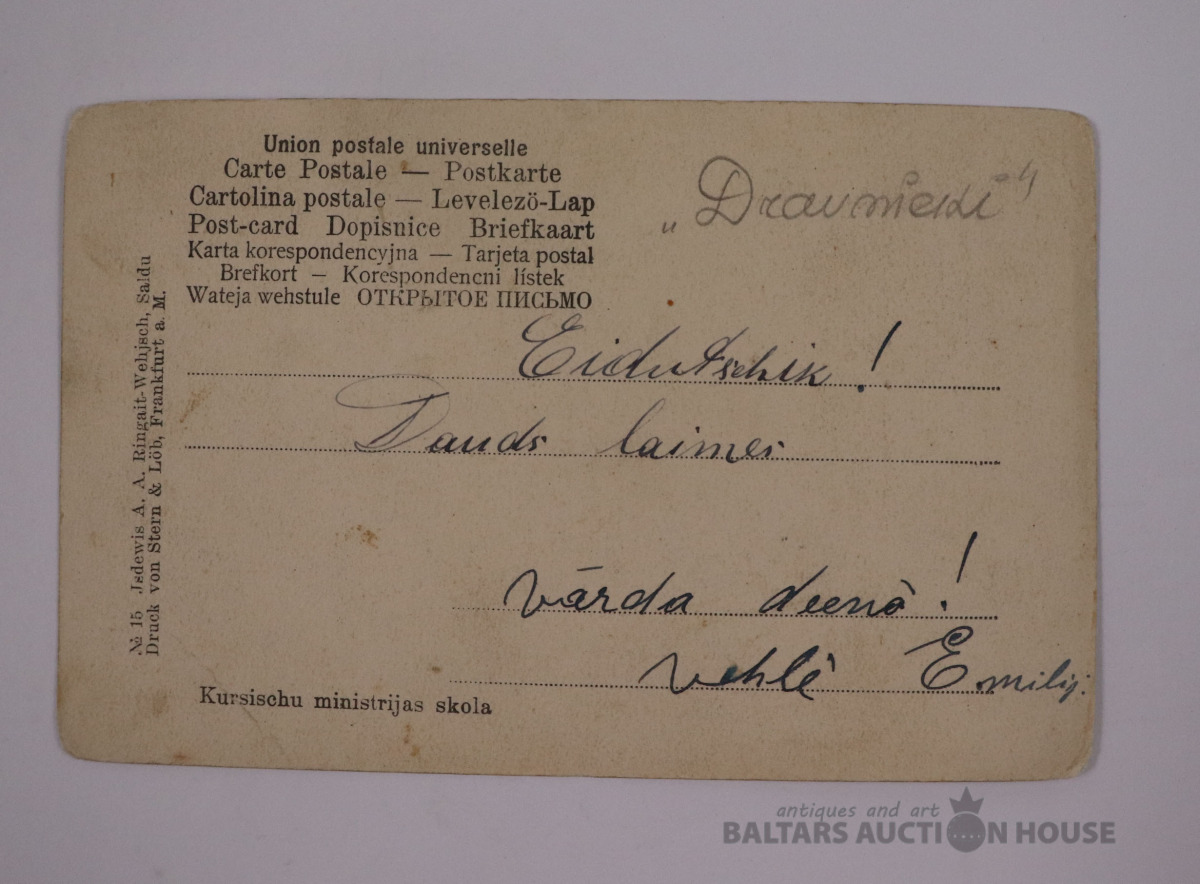 Union postale universelle
Carte Postale — Postkarte
Cartolina postale — Levelezö-Lap
Post-card Dopisnice Briefkaart
Karta korespondencyjna — Tarjeta postal
Brefkort — Korespondencni lístek
Wateja wehstule ОТКРЫТОЕ ПИСЬМО
„Dravnieki"
Eidutschik!
Dauds laimes
vārda deenā!
vehlē Emilij.
Kursischu ministrijas skola
№ 15 Jsdewis A. A. Ringait-Wehjsch, Saldu
Druck von Stern & Löb, Frankfurt a. M.
antiques and art
BALTARS AUCTION HOUSE